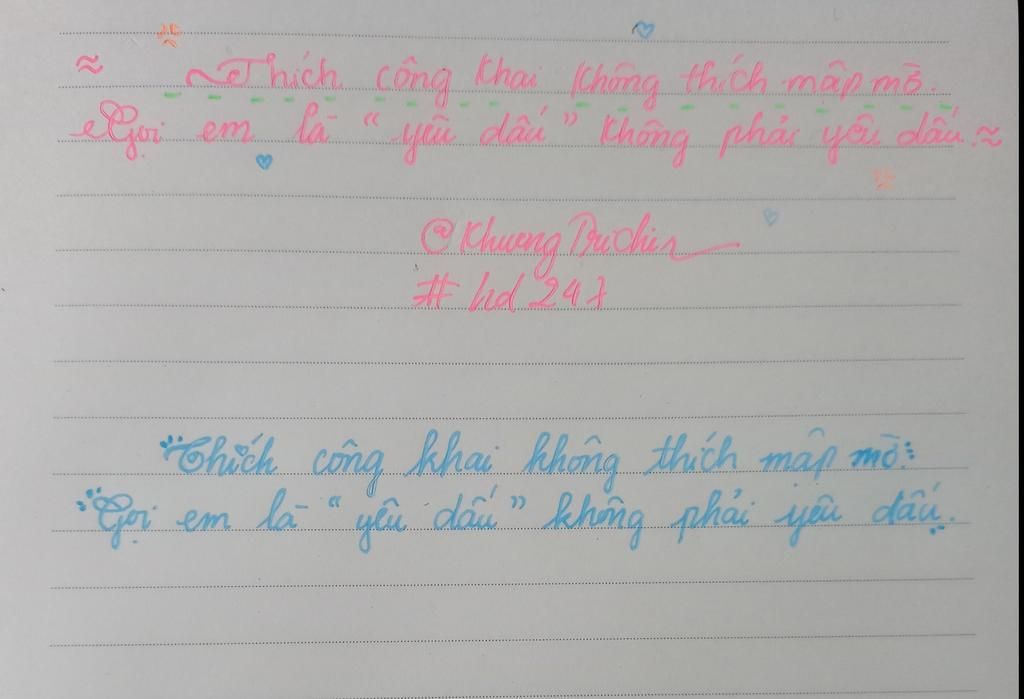 Thích công khai không thích mập mờ.
Gọi em là “yêu dấu” không phải yêu dấu.
# hd 247
Thích công khai không thích mập mờ.
Gọi em là “yêu dấu” không phải yêu dấu.